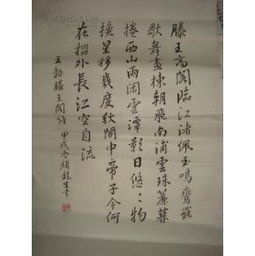 滕王高閣臨江渚佩玉鳴鸞罷
歌舞畫棟朝飛南浦雲珠簾暮
捲西山雨閑雲潭影日悠々物
換星移幾度秋閣中帝子今何
在檻外長江空自流
王勃滕王閣詩 甲戌冬